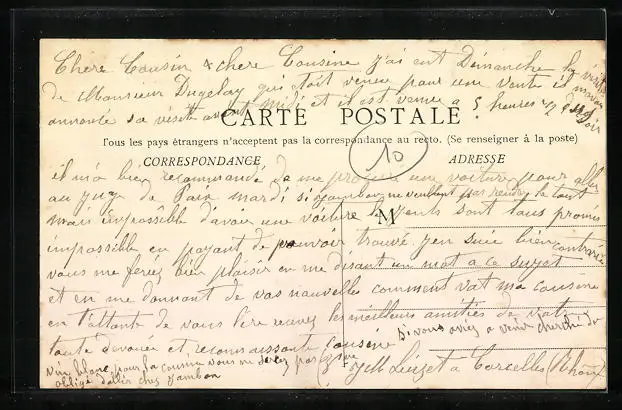 Chere Cousin & chere Cousine j'ai eut Démanche la visite
de Monsieur Dugelay qui etait venue pour une vente il m'avait
annoncé sa visite avant midi et il est venue a 5 heures ½ du soir
CARTE POSTALE
Tous les pays étrangers n'acceptent pas la correspondance au recto. (Se renseigner à la poste)
10
CORRESPONDANCE ADRESSE
il m'a bien recommandé de me procurer une voiture pour aller
au juge de Paix mardi si jambon ne veulent pas rendre le tout
mais impossible d'avoir une voiture les gents sont tous promis
M
impossible en payant de pouvoir trouvé j'en suis bien contrariée
vous me feriez bien plaisir en me disant un mot a ce sujet
et en me donnant de vos nouvelles comment vat ma cousine
en l'attente de vous lire recevez les meilleurs amitiés de votre
toute devouée et reconnaissante cousine
si vous aviez a venir cherché du
vin blanc pour la cousine vous ne serez pas
obligé d'allér chez jambon
a Corcelles (Rhône)